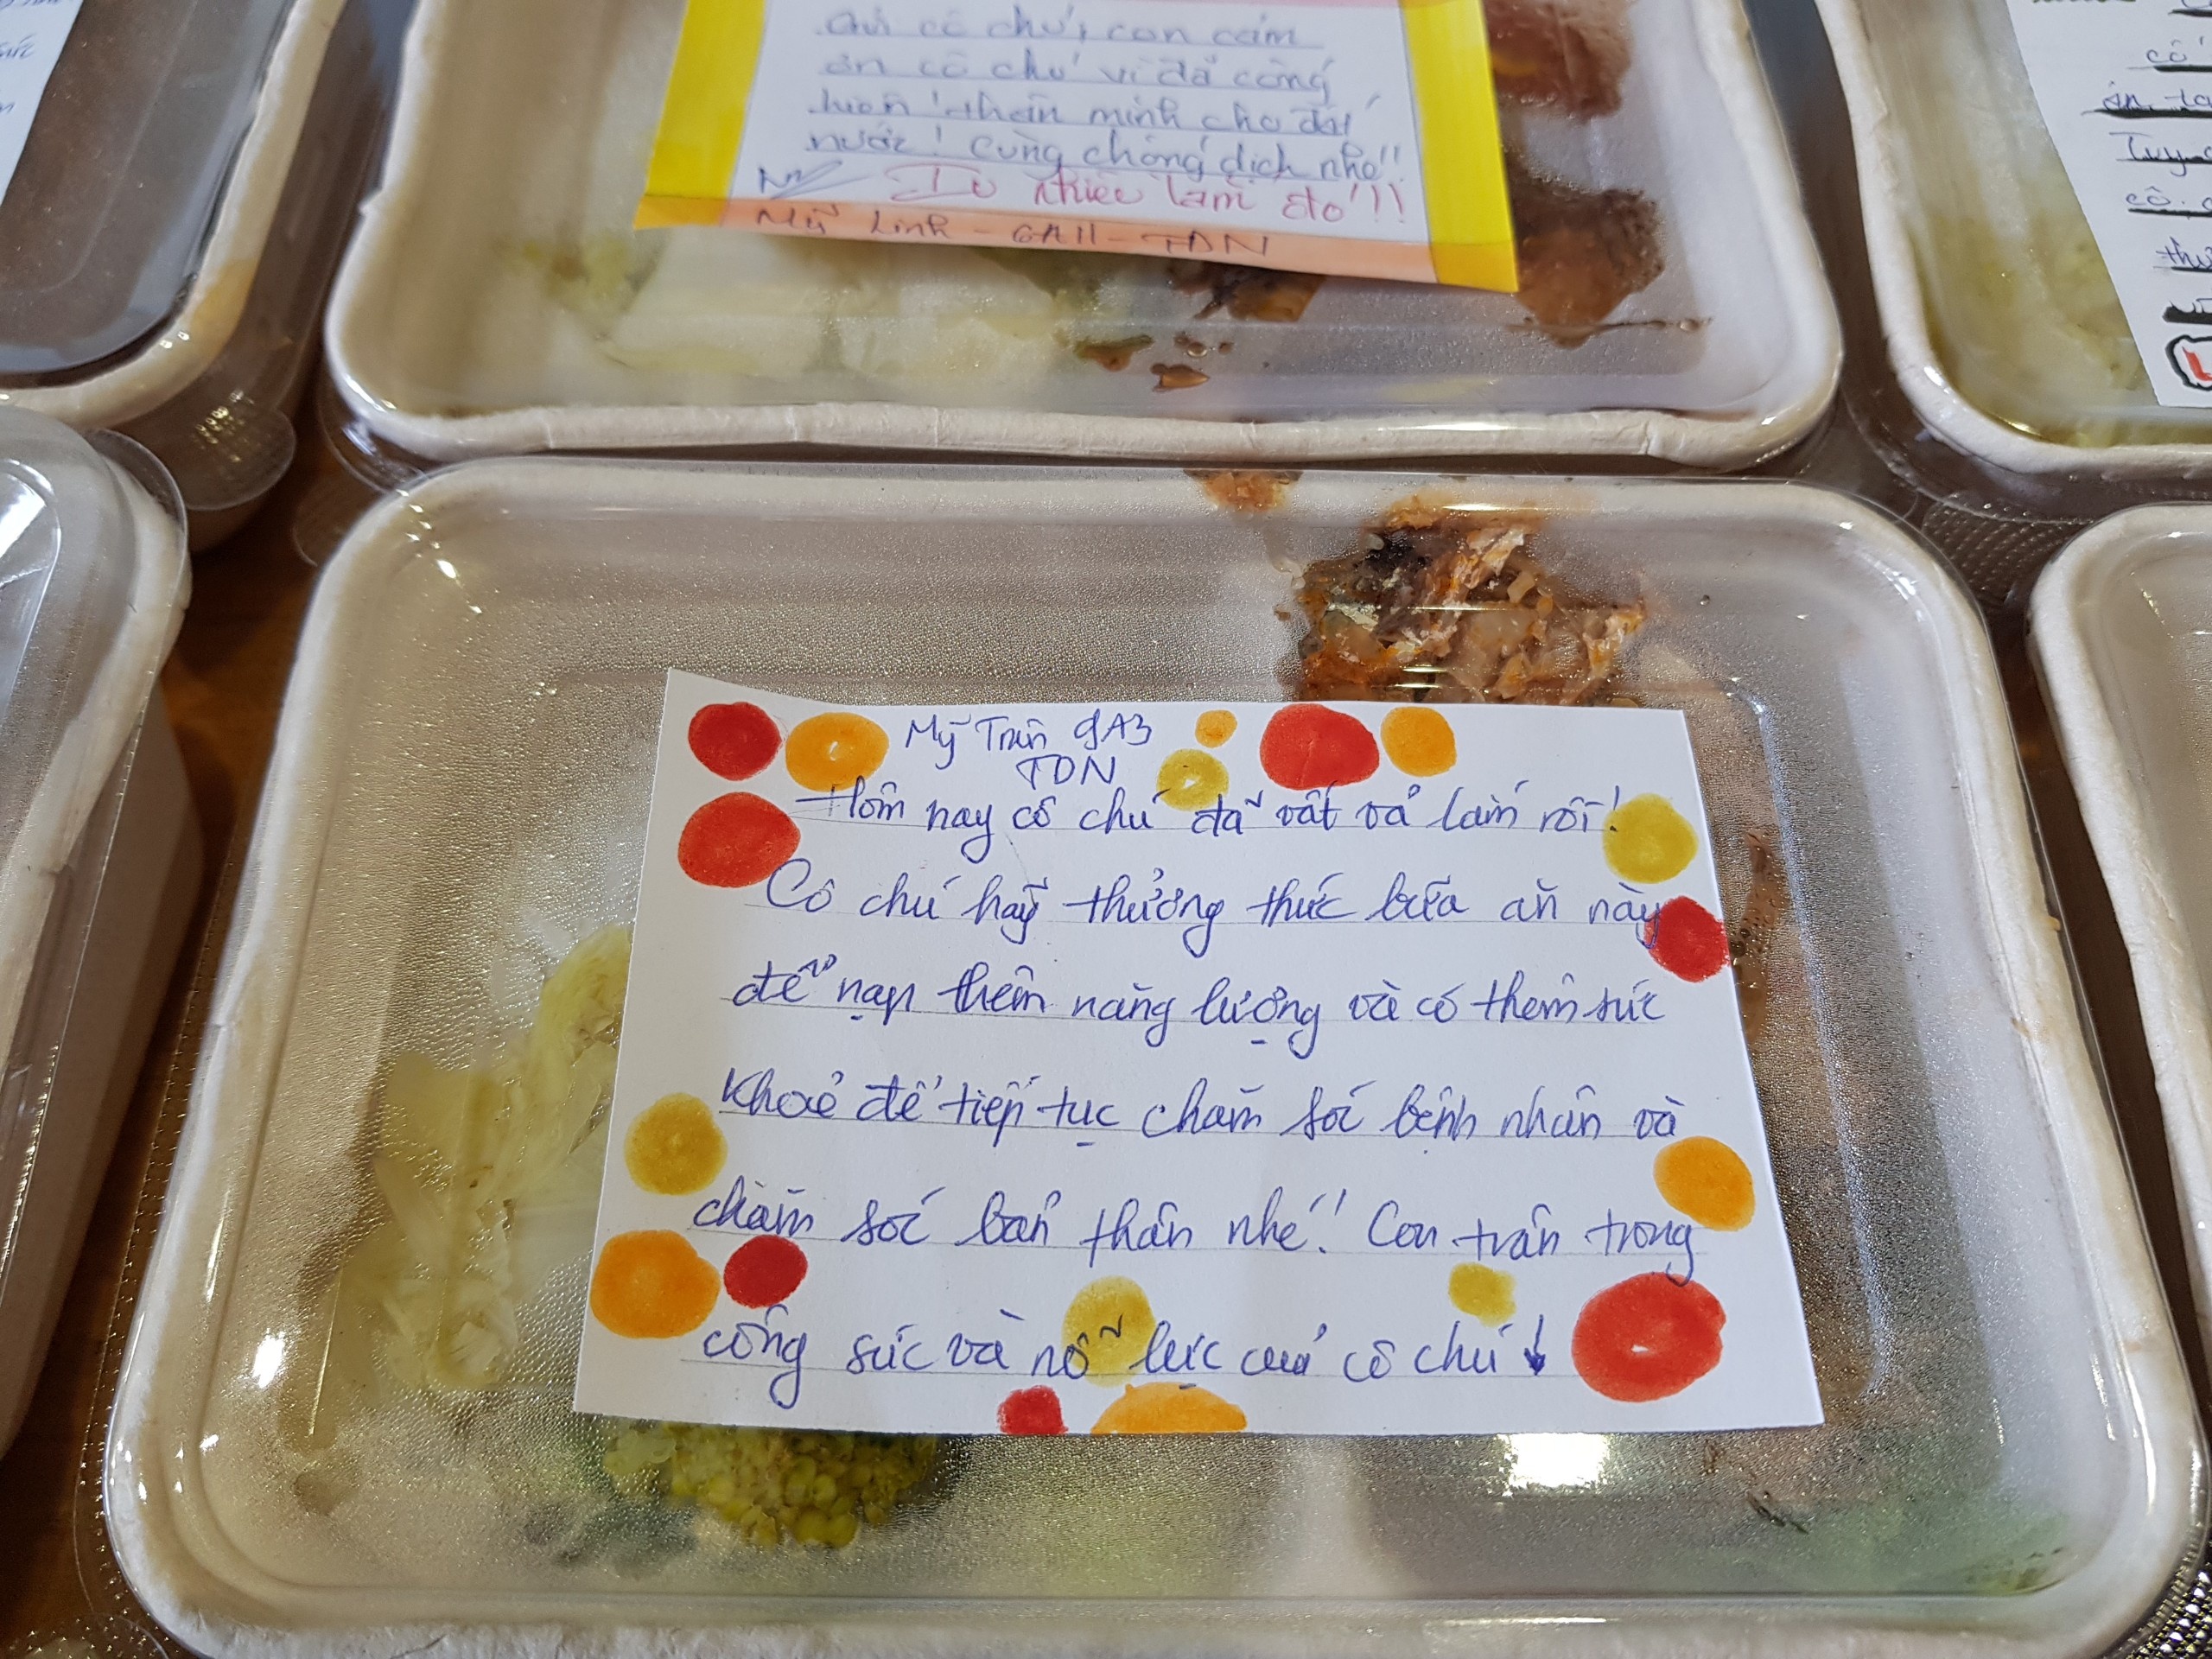 Gửi cô chú, con cám
ơn cô chú vì đã cống
hiến thân mình cho đất
nước! Cùng chống dịch nhé!!
Iu nhiều lắm đó!!!
Mỹ Linh - 6A11 - TDN
cô
ơn
Mỹ Trân 9A3
TDN
Hôm nay cô chú đã vất vả lắm rồi!
Cô chú hãy thưởng thức bữa ăn này
để nạp thêm năng lượng và có thêm sức
khoẻ để tiếp tục chăm sóc bệnh nhân và
chăm sóc bản thân nhé! Con trân trọng
công sức và nỗ lực của cô chú